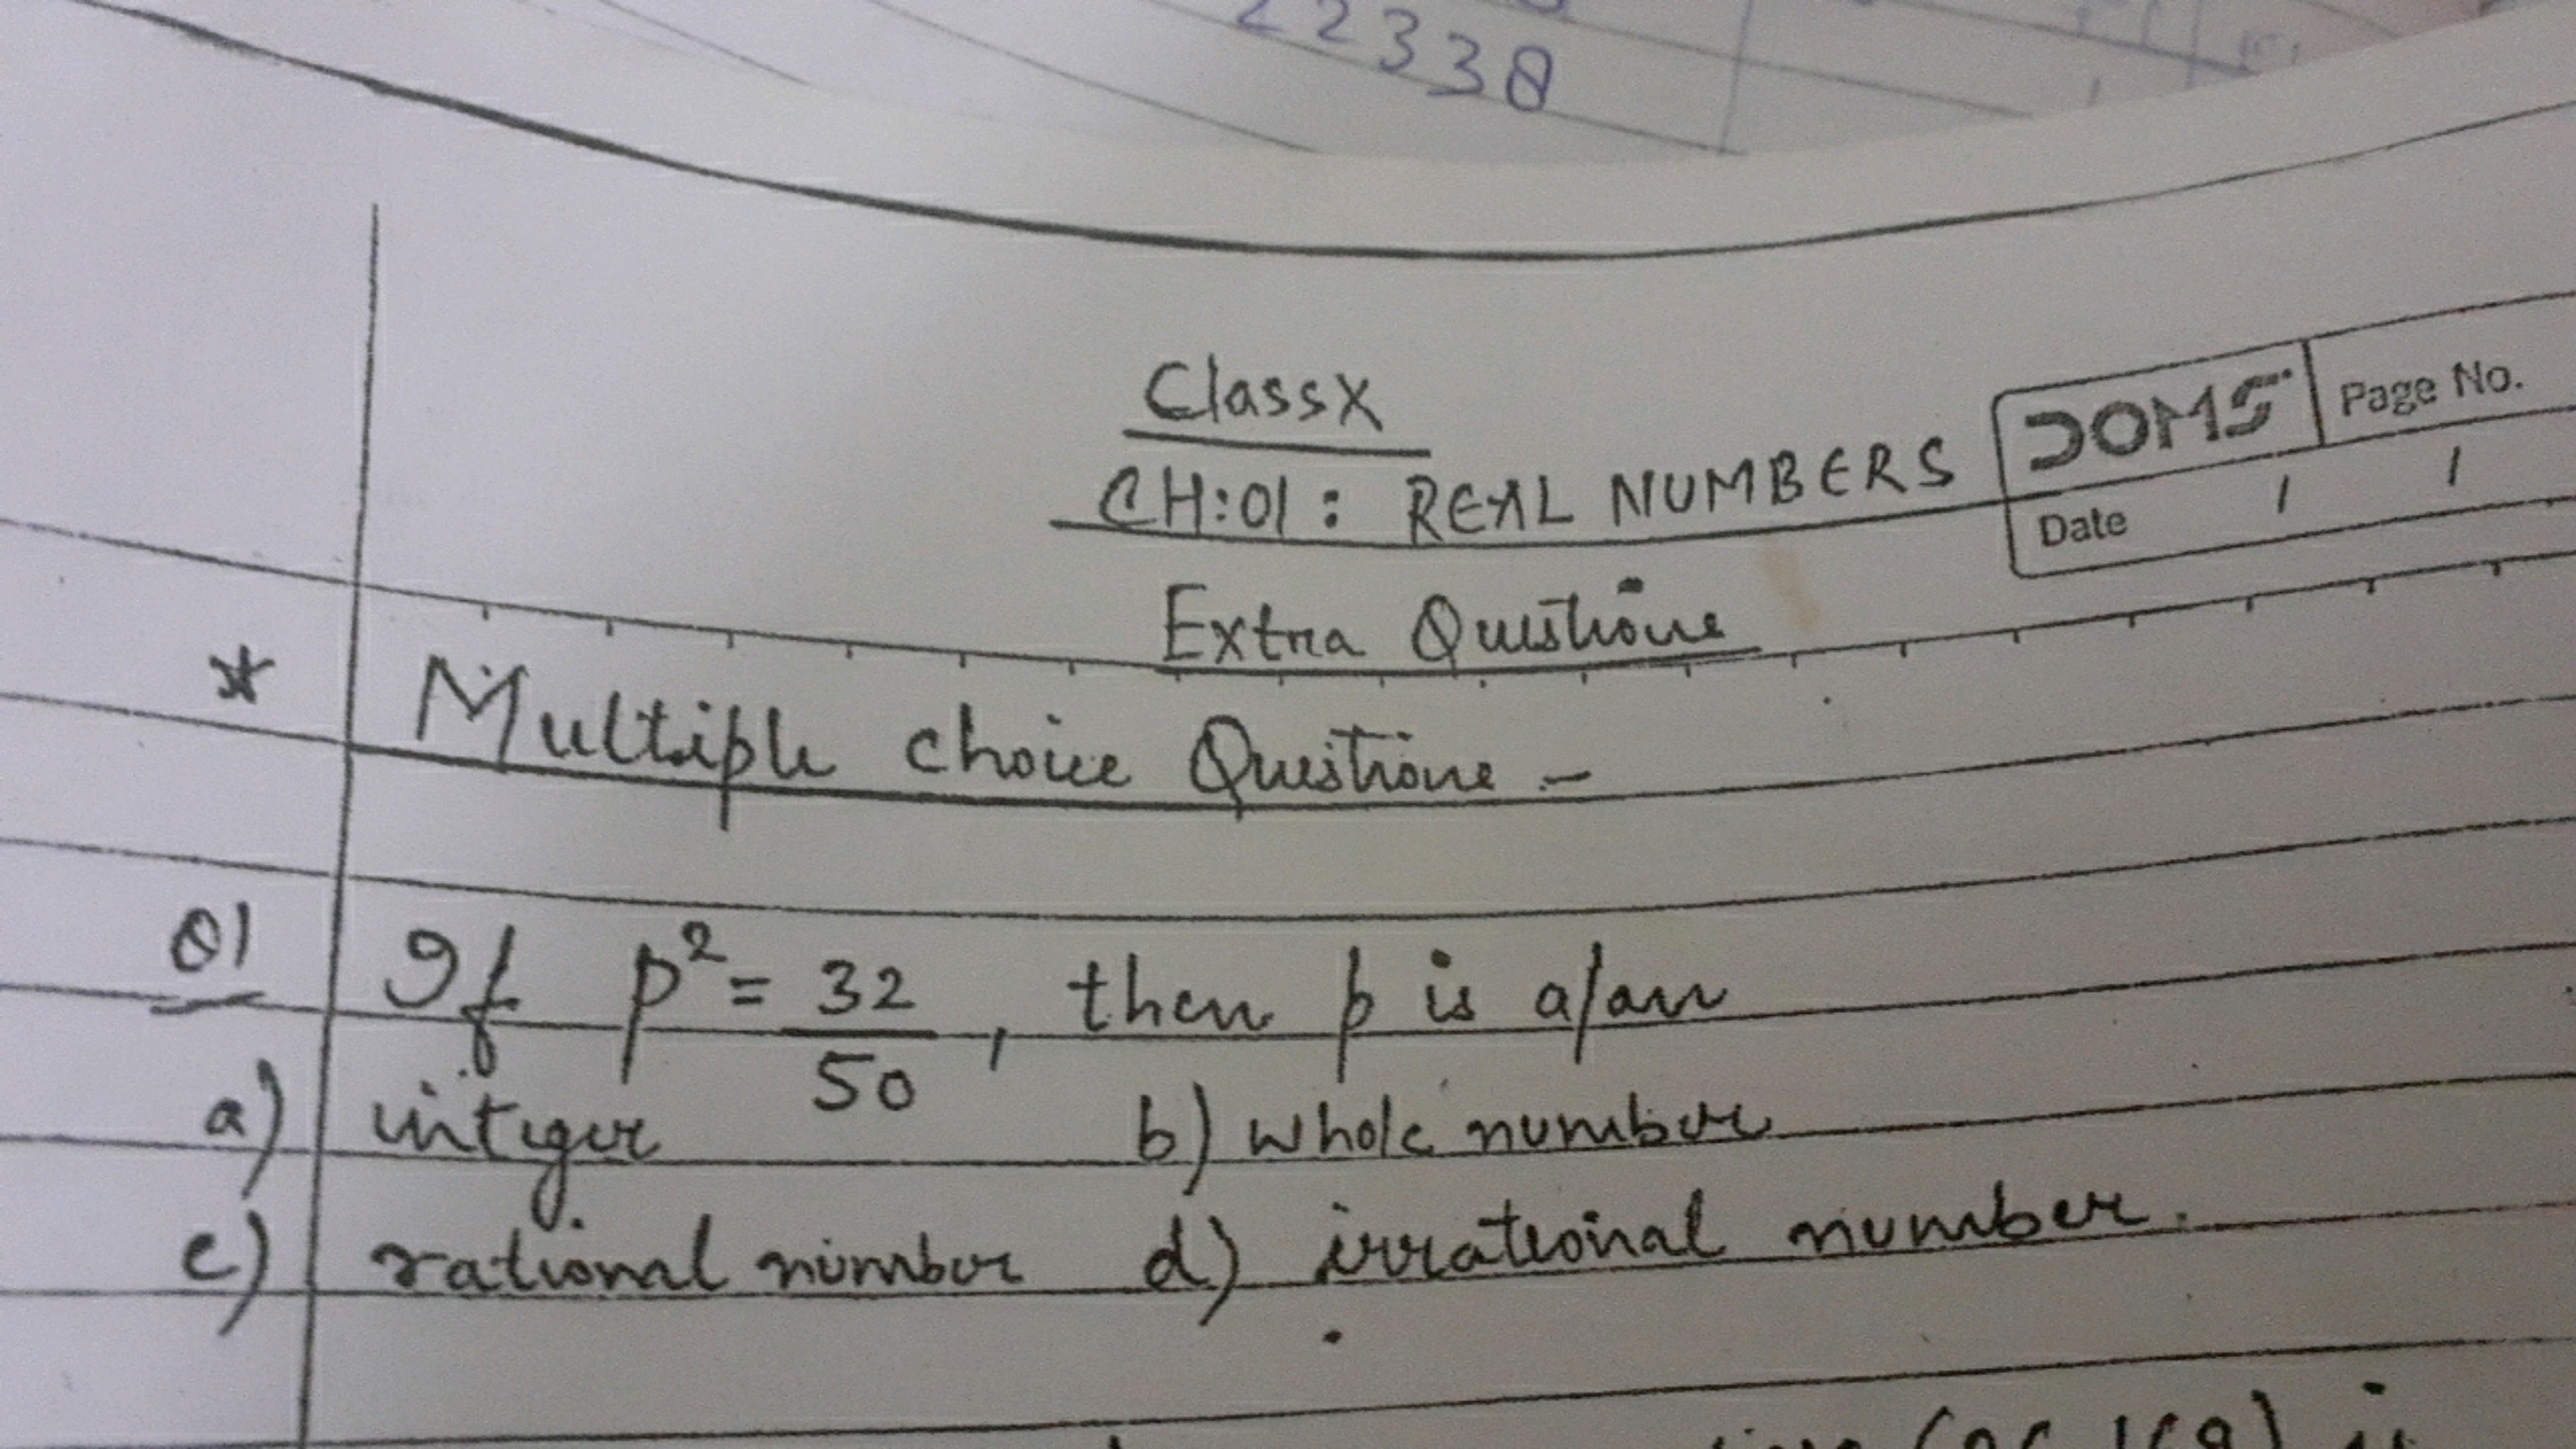 22338
Class X
CH:01: REAL NUMBERS
DOMS Page No.
Date / /
Extra Questions
* Multiple choice Questions -
Q1 If p² = 32/50, then p is a/an
a) integer b) whole number
c) rational number d) irrational number.